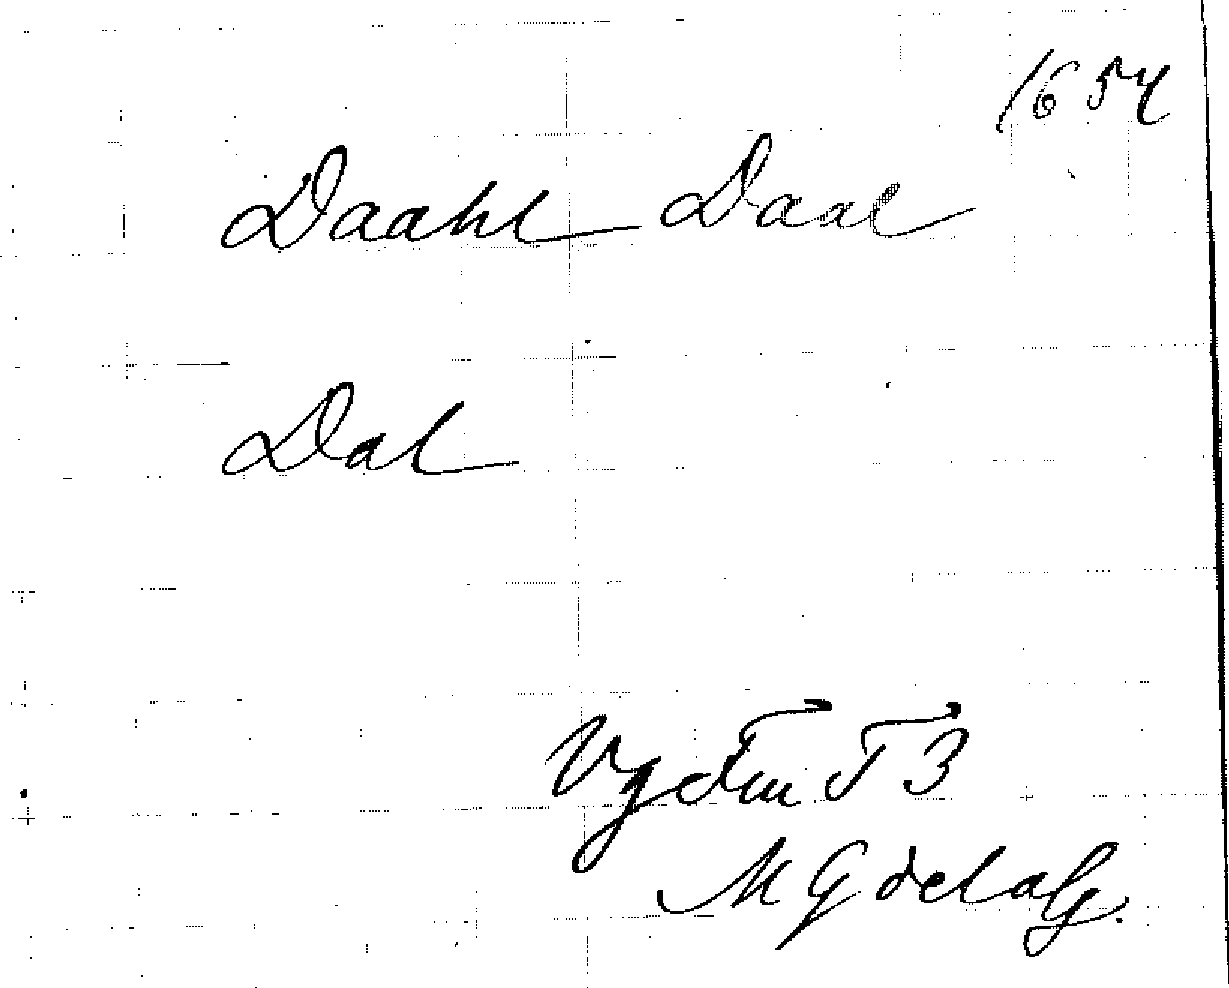 1654
Daahl Daal
Dal
T 3
M G de la G.